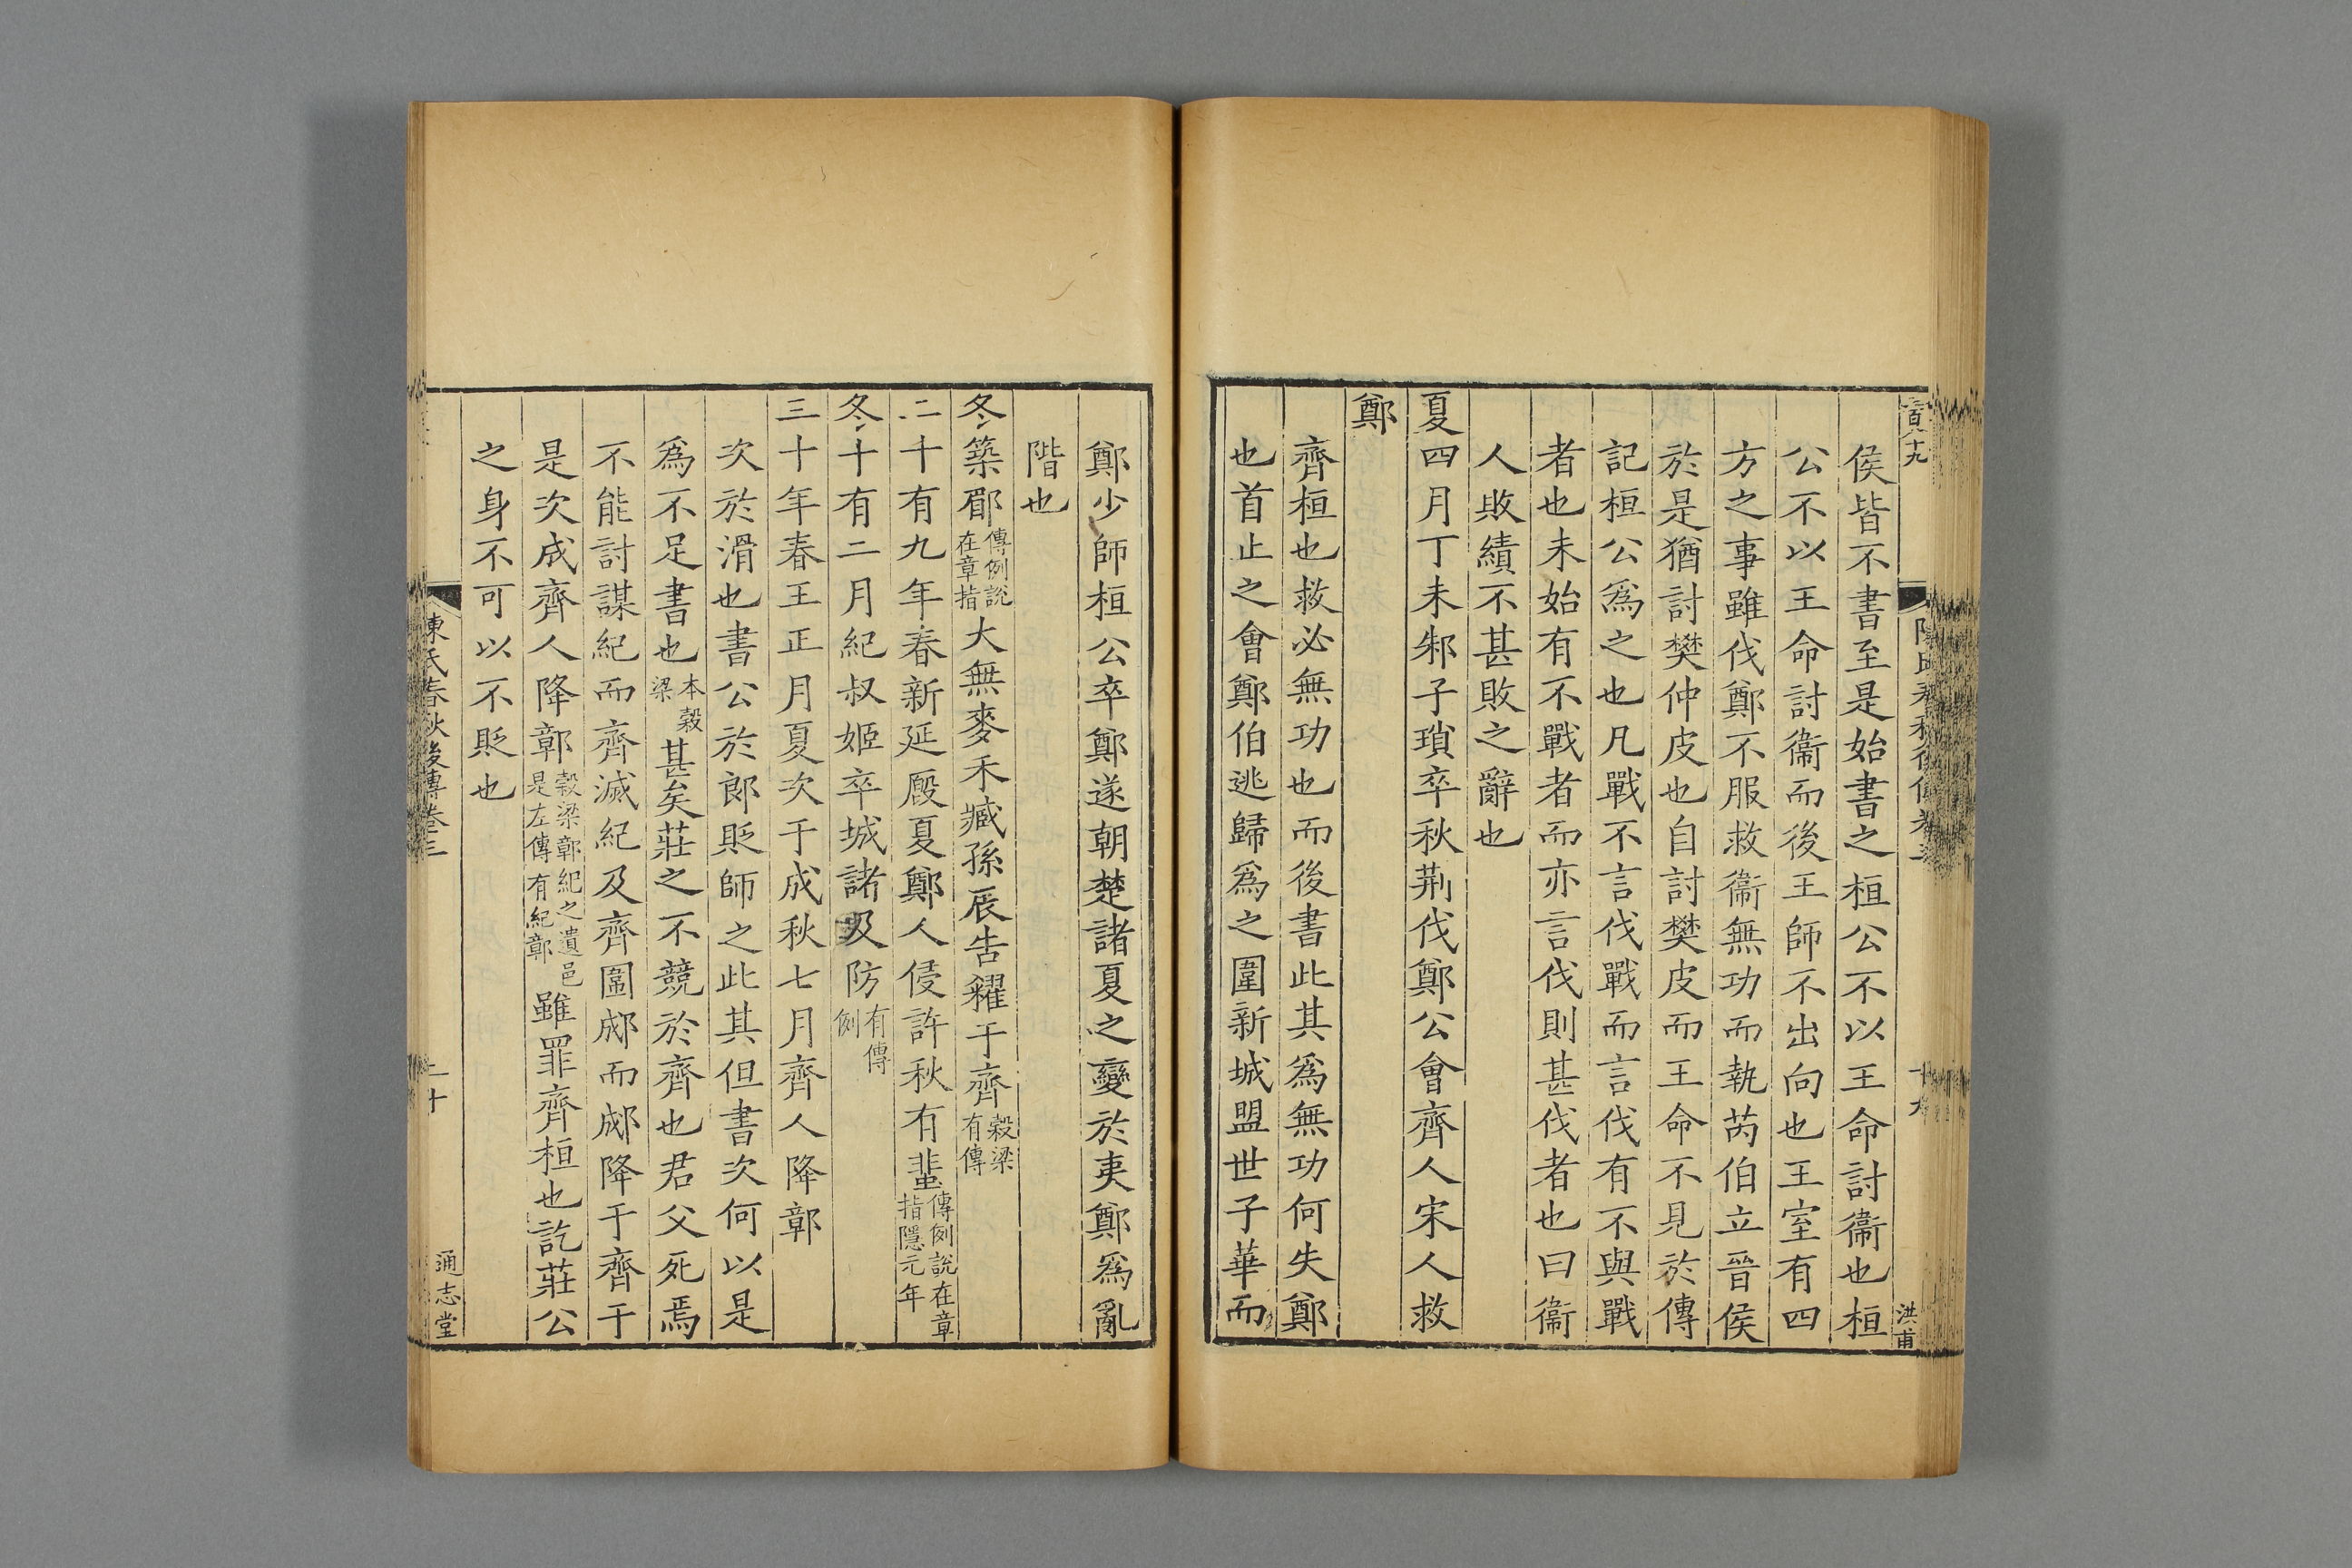 侯皆不書至是始書之桓公不以王命討衞也桓
公不以王命討衞而後王師不出向也王室有四
方之事雖伐鄭不服救衞無功而執芮伯立晉侯
於是猶討樊仲皮也自討樊皮而王命不見於傳
記桓公爲之也凡戰不言伐戰而言伐有不與戰
者也未始有不戰者而亦言伐則甚伐者也曰衞
人敗績不甚敗之辭也
夏四月丁未邾子瑣卒秋荆伐鄭公會齊人宋人救
鄭
齊桓也救必無功也而後書此其爲無功何失鄭
也首止之會鄭伯逃歸爲之圍新城盟世子華而
洪甫
鄭少師桓公卒鄭遂朝楚諸夏之變於夷鄭爲亂
階也
冬築郿傳例說在章指大無麥禾臧孫辰告糴于齊穀梁有傳
二十有九年春新延廏夏鄭人侵許秋有蜚傳例說在章指隱元年
冬十有二月紀叔姬卒城諸及防有傳例
三十年春王正月夏次于成秋七月齊人降鄣
次於滑也書公於郎貶師之此其但書次何以是
爲不足書也本穀梁甚矣莊之不競於齊也君父死焉
不能討謀紀而齊滅紀及齊圍郕而郕降于齊于
是次成齊人降鄣穀梁鄣紀之遺邑是左傳有紀鄣雖罪齊桓也訖莊公
之身不可以不貶也
陳氏春秋後傳卷三
二十
通志堂